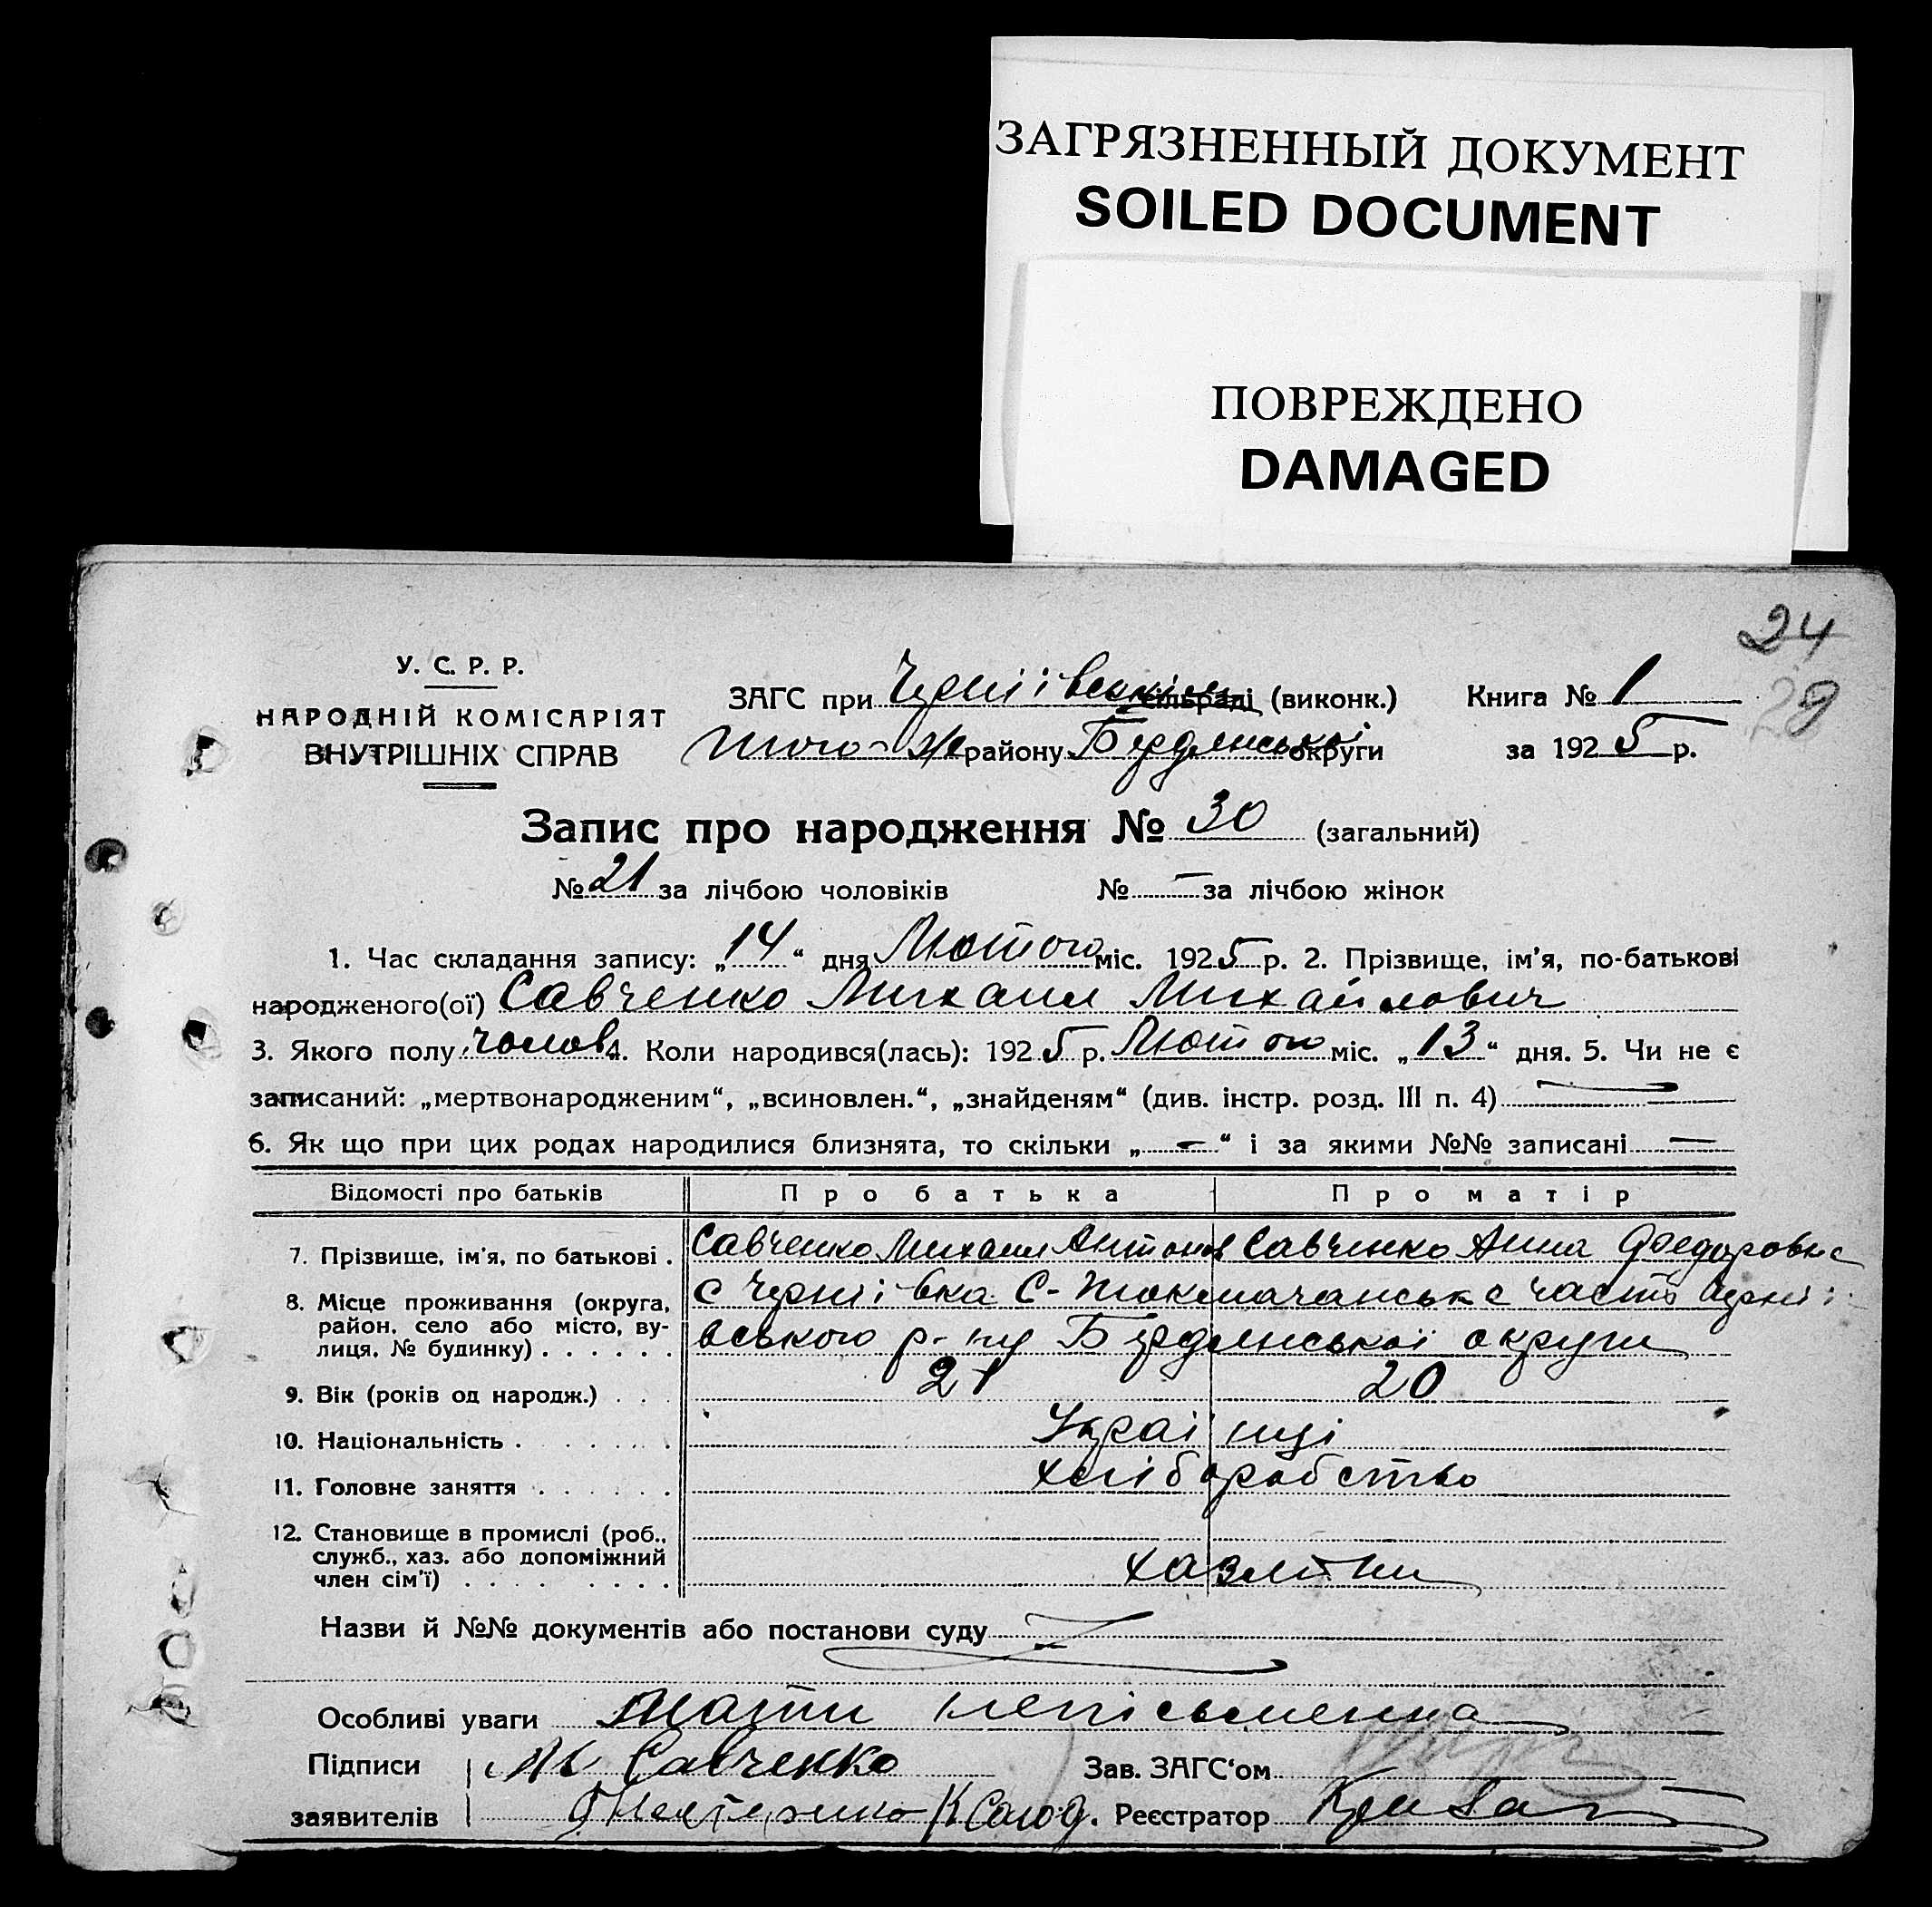 ЗАГРЯЗНЕННЫЙ ДОКУМЕНТ
SOILED DOCUMENT
ПОВРЕЖДЕНО
DAMAGED
24
29
У. С. Р. Р.
НАРОДНІЙ КОМІСАРІЯТ
ВНУТРІШНІХ СПРАВ
ЗАГС при Чернiiвським сільраді (виконк.) Книга № 1
того-же району Бердянської округи за 1925 р.
Запис про народження № 30 (загальний)
№ 21 за лічбою чоловіків № — за лічбою жінок
1. Час складання запису: „14“ дня Лютого міс. 1925 р. 2. Прізвище, ім'я, по-батькові
народженого(ої) Савченко Михаил Михайлович
3. Якого полу: чолов. 4. Коли народився(лась): 1925 р. Лютого міс. „13“ дня. 5. Чи не є
записаний: „мертвонародженим“, „всиновлен.“, „знайденям“ (див. інстр. розд. III п. 4) —
6. Як що при цих родах народилися близнята, то скільки „—“ і за якими №№ записані —
Відомості про батьків Про батька Про матір
7. Прізвище, ім'я, по батькові . Савченко Михаил Антонов Савченко Анна Федоровна
8. Місце проживання (округа, район, село або місто, вулиця, № будинку) . . . . . . с Чернiiвка С-Токмачанська часть Чернii-
вського р-ну Бердянської округи
9. Вік (років од народж.) . . . 21 20
10. Національність . . . . . . . Українці
11. Головне заняття . . . . . . хліборобство
12. Становище в промислі (роб., служб., хаз. або допоміжний член сім'ї) . . . . . . . . . хазяїни
Назви й №№ документів або постанови суду
Особливі уваги Мати неписьменна
Підписи М Савченко Зав. ЗАГС'ом
заявителів Реєстратор